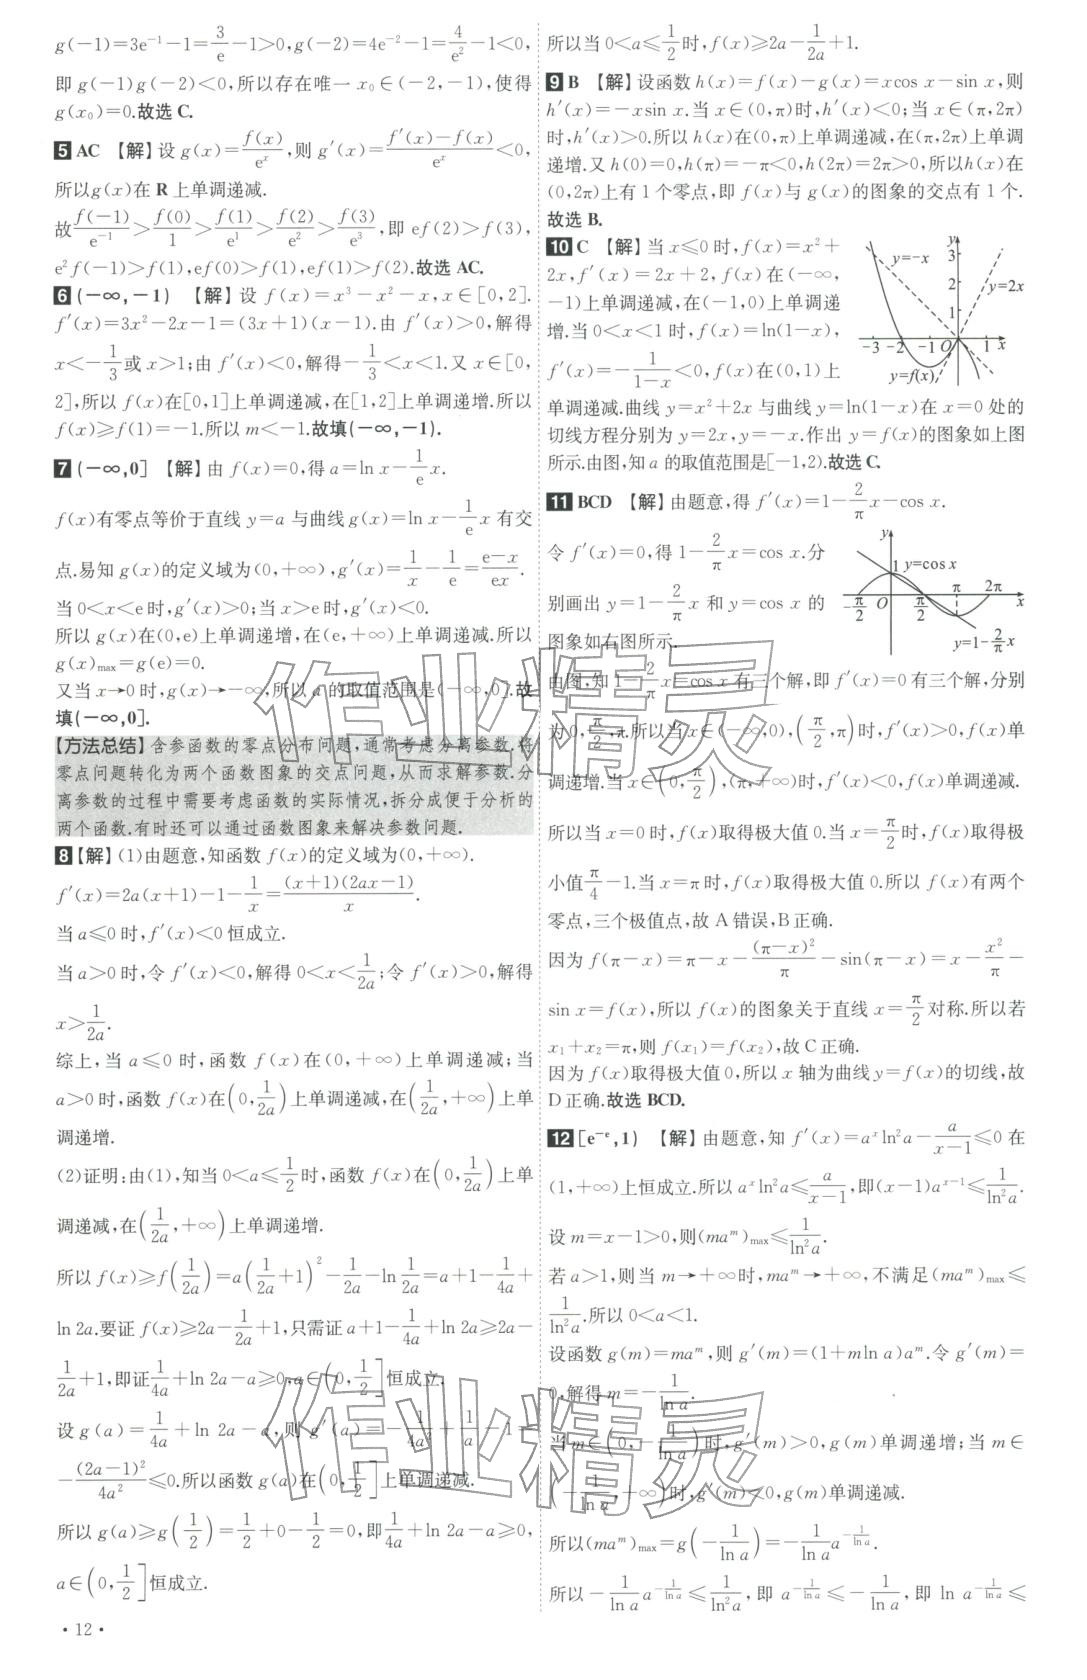 g(−1)=3e⁻¹−1=3/e−1>0,g(−2)=4e⁻²−1=4/e²−1<0,
即g(−1)g(−2)<0,所以存在唯一 x₀∈(−2,−1),使得
g(x₀)=0.故选C.
5 AC 【解】设g(x)=f(x)/eˣ,则g′(x)=(f′(x)−f(x))/eˣ<0,
所以g(x)在R上单调递减.
故f(−1)/e⁻¹>f(0)/1>f(1)/e¹>f(2)/e²>f(3)/e³,即ef(2)>f(3),
e²f(−1)>f(1),ef(0)>f(1),ef(1)>f(2).故选AC.
6 (−∞,−1) 【解】设 f(x)=x³−x²−x,x∈[0,2].
f′(x)=3x²−2x−1=(3x+1)(x−1).由 f′(x)>0,解得
x<−1/3或x>1;由f′(x)<0,解得−1/3<x<1.又x∈[0,
2],所以f(x)在[0,1]上单调递减,在[1,2]上单调递增.所以
f(x)≥f(1)=−1.所以m<−1.故填(−∞,−1).
7 (−∞,0] 【解】由f(x)=0,得a=ln x−1/e x.
f(x)有零点等价于直线y=a与曲线g(x)=ln x−1/e x有交
点.易知g(x)的定义域为(0,+∞),g′(x)=1/x−1/e=(e−x)/ex.
当0<x<e时,g′(x)>0;当x>e时,g′(x)<0.
所以g(x)在(0,e)上单调递增,在(e,+∞)上单调递减.所以
g(x)max=g(e)=0.
又当x→0时,g(x)→−∞,所以a的取值范围是(−∞,0].故
填(−∞,0].
【方法总结】含参函数的零点分布问题,通常考虑分离参数.将
零点问题转化为两个函数图象的交点问题,从而求解参数.分
离参数的过程中需要考虑函数的实际情况,拆分成便于分析的
两个函数.有时还可以通过函数图象来解决参数问题.
8【解】(1)由题意,知函数f(x)的定义域为(0,+∞).
f′(x)=2a(x+1)−1−1/x=(x+1)(2ax−1)/x.
当a≤0时,f′(x)<0恒成立.
当a>0时,令f′(x)<0,解得0<x<1/2a;令f′(x)>0,解得
x>1/2a.
综上,当a≤0时,函数f(x)在(0,+∞)上单调递减;当
a>0时,函数f(x)在(0,1/2a)上单调递减,在(1/2a,+∞)上单
调递增.
(2)证明:由(1),知当0<a≤1/2时,函数f(x)在(0,1/2a)上单
调递减,在(1/2a,+∞)上单调递增.
所以f(x)≥f(1/2a)=a(1/2a+1)²−1/2a−ln 1/2a=a+1−1/4a+
ln 2a.要证f(x)≥2a−1/2a+1,只需证a+1−1/4a+ln 2a≥2a−
1/2a+1,即证1/4a+ln 2a−a≥0,a∈(0,1/2]恒成立.
设g(a)=1/4a+ln 2a−a,则g′(a)=−1/4a²+1/a−1=
−(2a−1)²/4a²≤0.所以函数g(a)在(0,1/2]上单调递减.
所以g(a)≥g(1/2)=1/2+0−1/2=0,即1/4a+ln 2a−a≥0,
a∈(0,1/2]恒成立.
• 12 •
所以当0<a≤1/2时,f(x)≥2a−1/2a+1.
9 B 【解】设函数h(x)=f(x)−g(x)=xcos x−sin x,则
h′(x)=−xsin x.当x∈(0,π)时,h′(x)<0;当x∈(π,2π)
时,h′(x)>0.所以h(x)在(0,π)上单调递减,在(π,2π)上单调
递增.又h(0)=0,h(π)=−π<0,h(2π)=2π>0,所以h(x)在
(0,2π)上有1个零点,即f(x)与g(x)的图象的交点有1个.
故选B.
10 C 【解】当x≤0时,f(x)=x²+
2x,f′(x)=2x+2,f(x)在(−∞,
−1)上单调递减,在(−1,0)上单调递
增.当0<x<1时,f(x)=ln(1−x),
f′(x)=−1/(1−x)<0,f(x)在(0,1)上
y=−x
y
3
2
1
y=2x
−3 −2 −1 O 1 x
y=f(x)
单调递减.曲线y=x²+2x与曲线y=ln(1−x)在x=0处的
切线方程分别为y=2x,y=−x.作出y=f(x)的图象如上图
所示.由图,知a的取值范围是[−1,2).故选C.
11 BCD 【解】由题意,得f′(x)=1−2/π x−cos x.
令f′(x)=0,得1−2/π x=cos x.分
别画出y=1−2/π x和y=cos x的
图象如右图所示.
y
1 y=cos x
−π/2 O π/2 π 2π x
y=1−2/π x
由图,知1−2/π x=cos x有三个解,即f′(x)=0有三个解,分别
为0,π/2,π.所以当x∈(−∞,0),(π/2,π)时,f′(x)>0,f(x)单
调递增.当x∈(0,π/2),(π,+∞)时,f′(x)<0,f(x)单调递减.
所以当x=0时,f(x)取得极大值0.当x=π/2时,f(x)取得极
小值π/4−1.当x=π时,f(x)取得极大值0.所以f(x)有两个
零点,三个极值点,故A错误,B正确.
因为f(π−x)=π−x−(π−x)²/π−sin(π−x)=x−x²/π−
sin x=f(x),所以f(x)的图象关于直线x=π/2对称.所以若
x₁+x₂=π,则f(x₁)=f(x₂),故C正确.
因为f(x)取得极大值0,所以x轴为曲线y=f(x)的切线,故
D正确.故选BCD.
12 [e⁻ᵉ,1) 【解】由题意,知f′(x)=aˣln²a−a/(x−1)≤0在
(1,+∞)上恒成立.所以aˣln²a≤a/(x−1),即(x−1)aˣ⁻¹≤1/ln²a.
设m=x−1>0,则(maᵐ)max≤1/ln²a.
若a>1,则当m→+∞时,maᵐ→+∞,不满足(maᵐ)max≤
1/ln²a.所以0<a<1.
设函数g(m)=maᵐ,则g′(m)=(1+mln a)aᵐ.令g′(m)=
0,解得m=−1/ln a.
当m∈(0,−1/ln a)时,g′(m)>0,g(m)单调递增;当m∈
(−1/ln a,+∞)时,g′(m)<0,g(m)单调递减.
所以(maᵐ)max=g(−1/ln a)=−1/ln a a^(−1/ln a).
所以−1/ln a a^(−1/ln a)≤1/ln²a,即a^(−1/ln a)≤−1/ln a,即ln a^(−1/ln a)≤
作业精灵
作业精灵